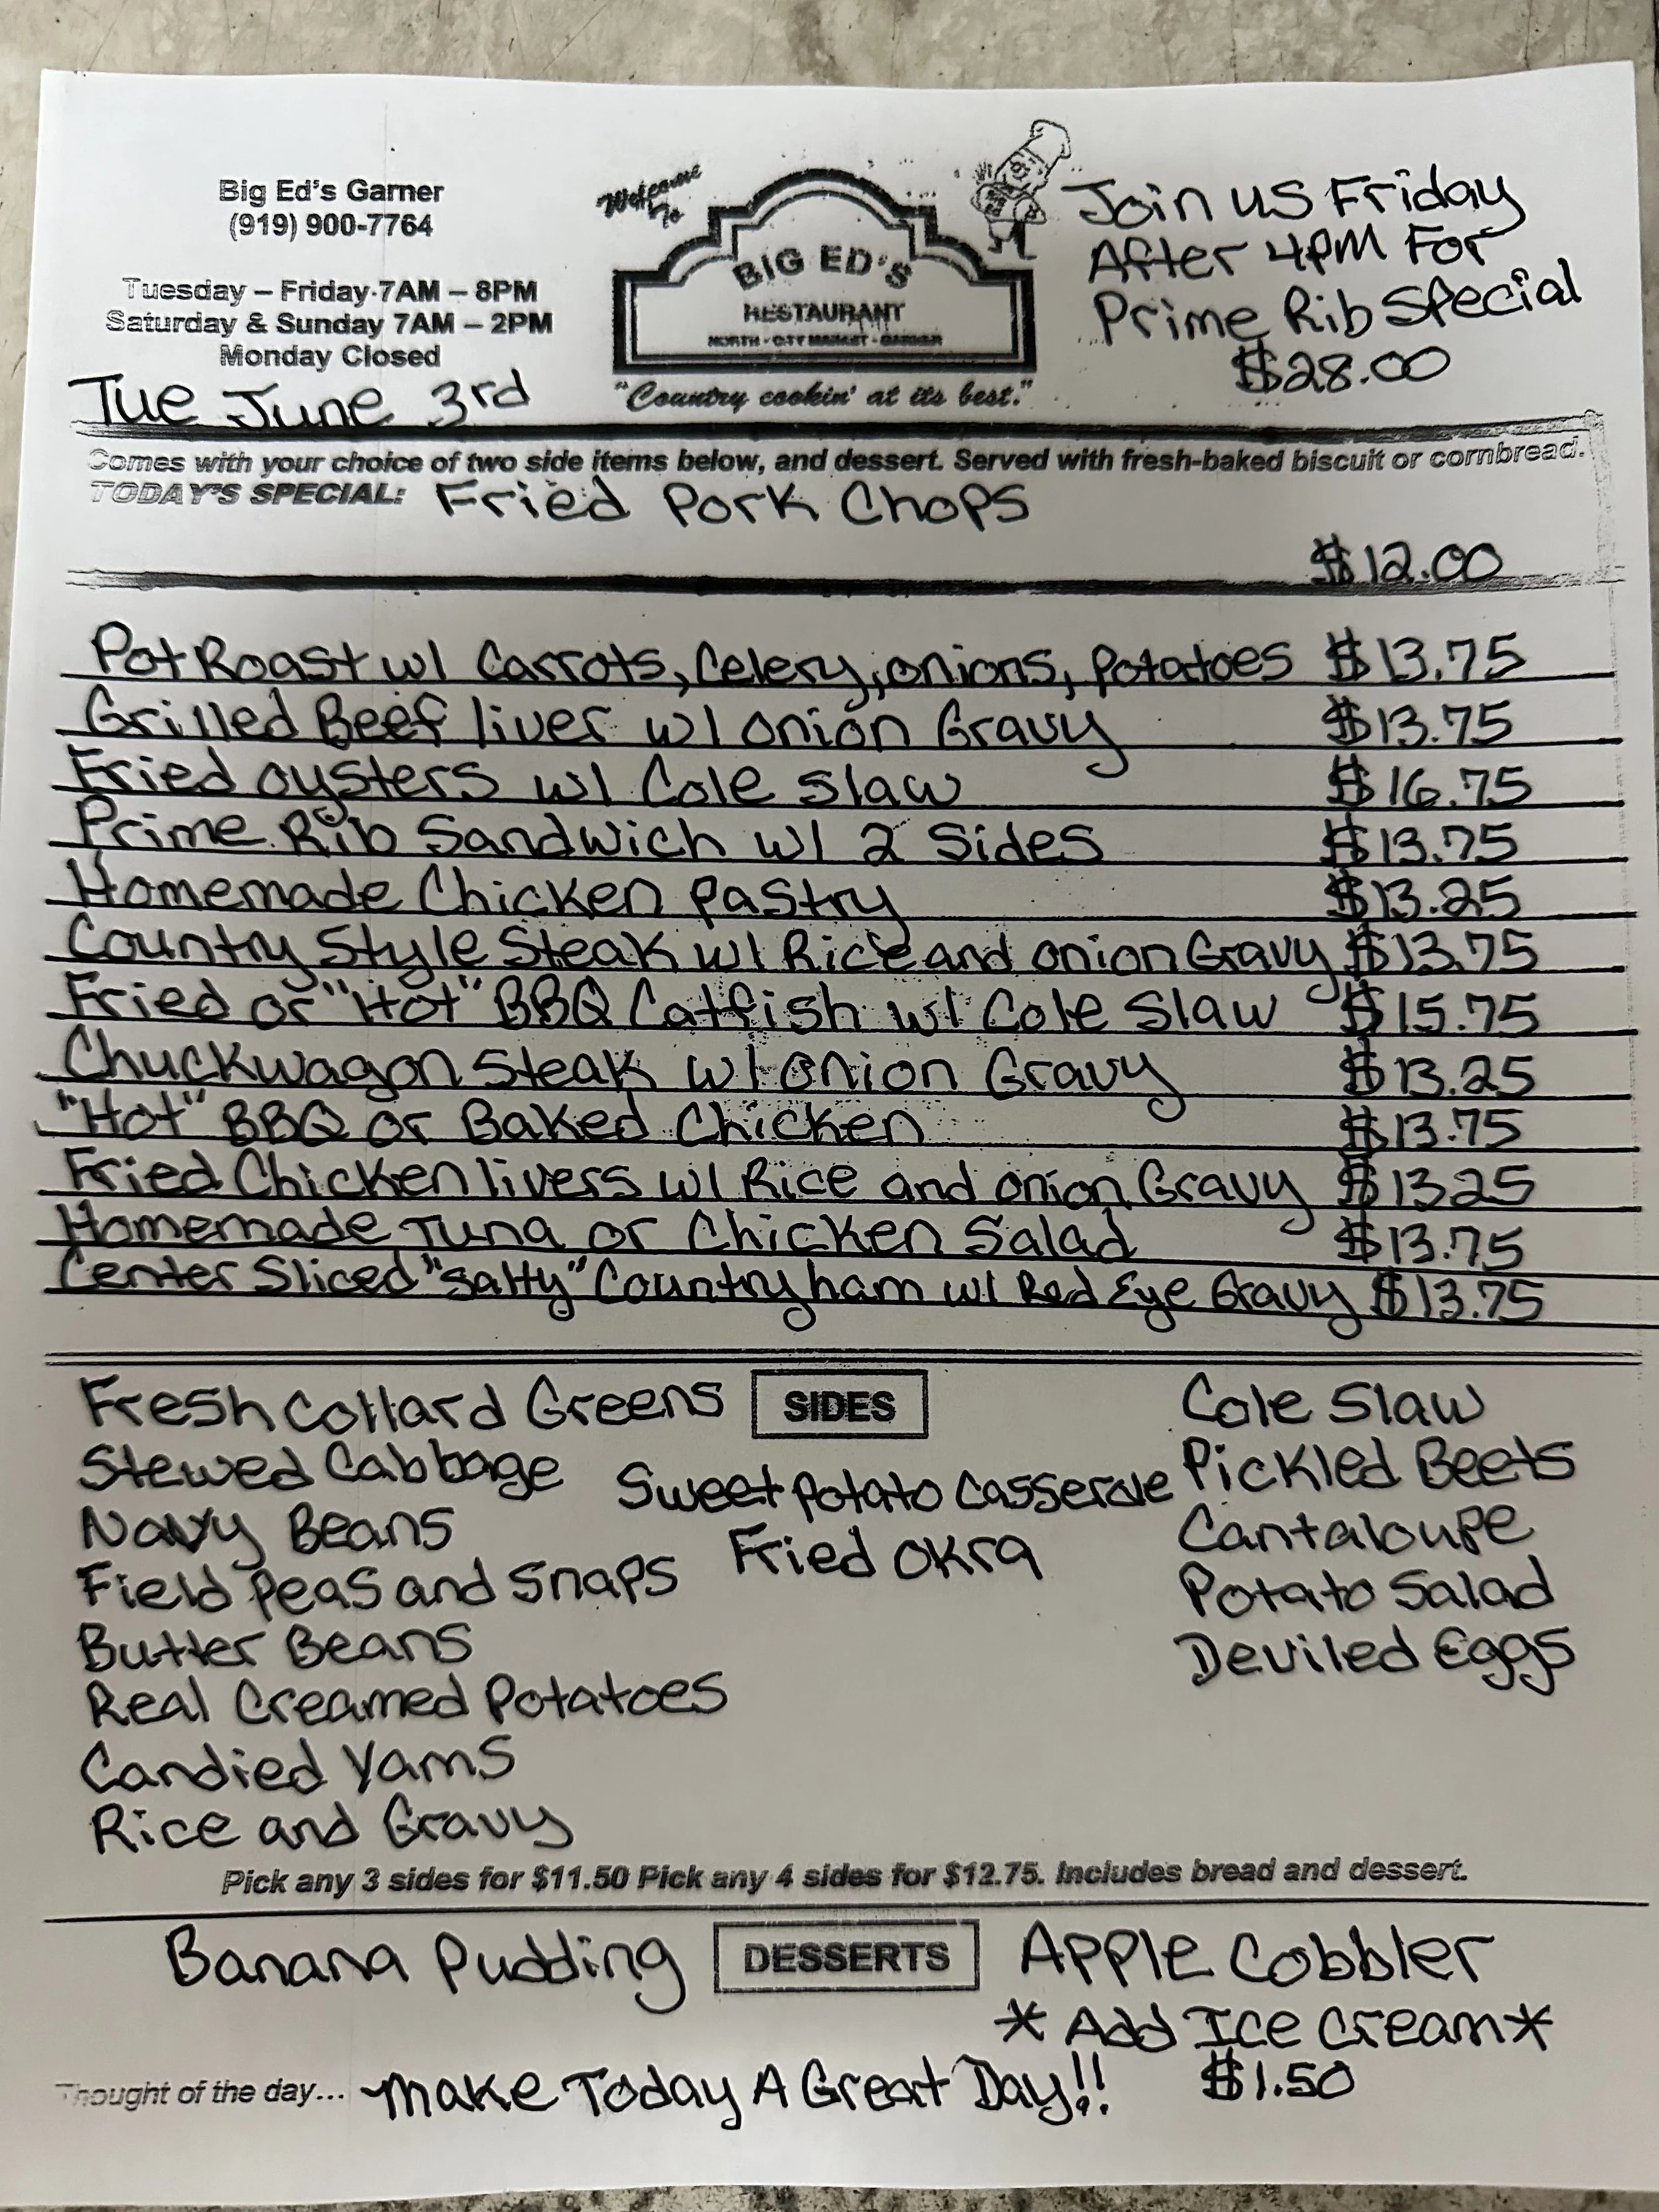 Big Ed's Garner
(919) 900-7764
Tuesday – Friday 7AM – 8PM
Saturday & Sunday 7AM – 2PM
Monday Closed
Tue June 3rd
Welcome
To
BIG ED'S
RESTAURANT
NORTH - CITY MARKET - GARNER
"Country cookin' at its best."
Join us Friday
After 4PM For
Prime Rib Special
$28.00
Comes with your choice of two side items below, and dessert. Served with fresh-baked biscuit or cornbread.
TODAY'S SPECIAL: Fried Pork Chops
$12.00
Pot Roast w/ Carrots, Celery, onions, Potatoes $13.75
Grilled Beef liver w/ onion Gravy $13.75
Fried oysters w/ Cole Slaw $16.75
Prime Rib Sandwich w/ 2 Sides $13.75
Homemade Chicken Pastry $13.25
Country Style Steak w/ Rice and onion Gravy $13.75
Fried or "Hot" BBQ Catfish w/ Cole Slaw $15.75
Chuckwagon Steak w/ onion Gravy $13.25
"Hot" BBQ or Baked Chicken $13.75
Fried Chicken livers w/ Rice and onion Gravy $13.25
Homemade Tuna or Chicken Salad $13.75
Center Sliced "Salty" Country ham w/ Red Eye Gravy $13.75
SIDES
Fresh Collard Greens
Stewed Cabbage
Navy Beans
Field Peas and Snaps
Butter Beans
Real Creamed Potatoes
Candied Yams
Rice and Gravy
Sweet Potato Casserole
Fried Okra
Cole Slaw
Pickled Beets
Cantaloupe
Potato Salad
Deviled Eggs
Pick any 3 sides for $11.50 Pick any 4 sides for $12.75. Includes bread and dessert.
DESSERTS
Banana Pudding
Apple Cobbler
*Add Ice Cream*
$1.50
Thought of the day... Make Today A Great Day!!